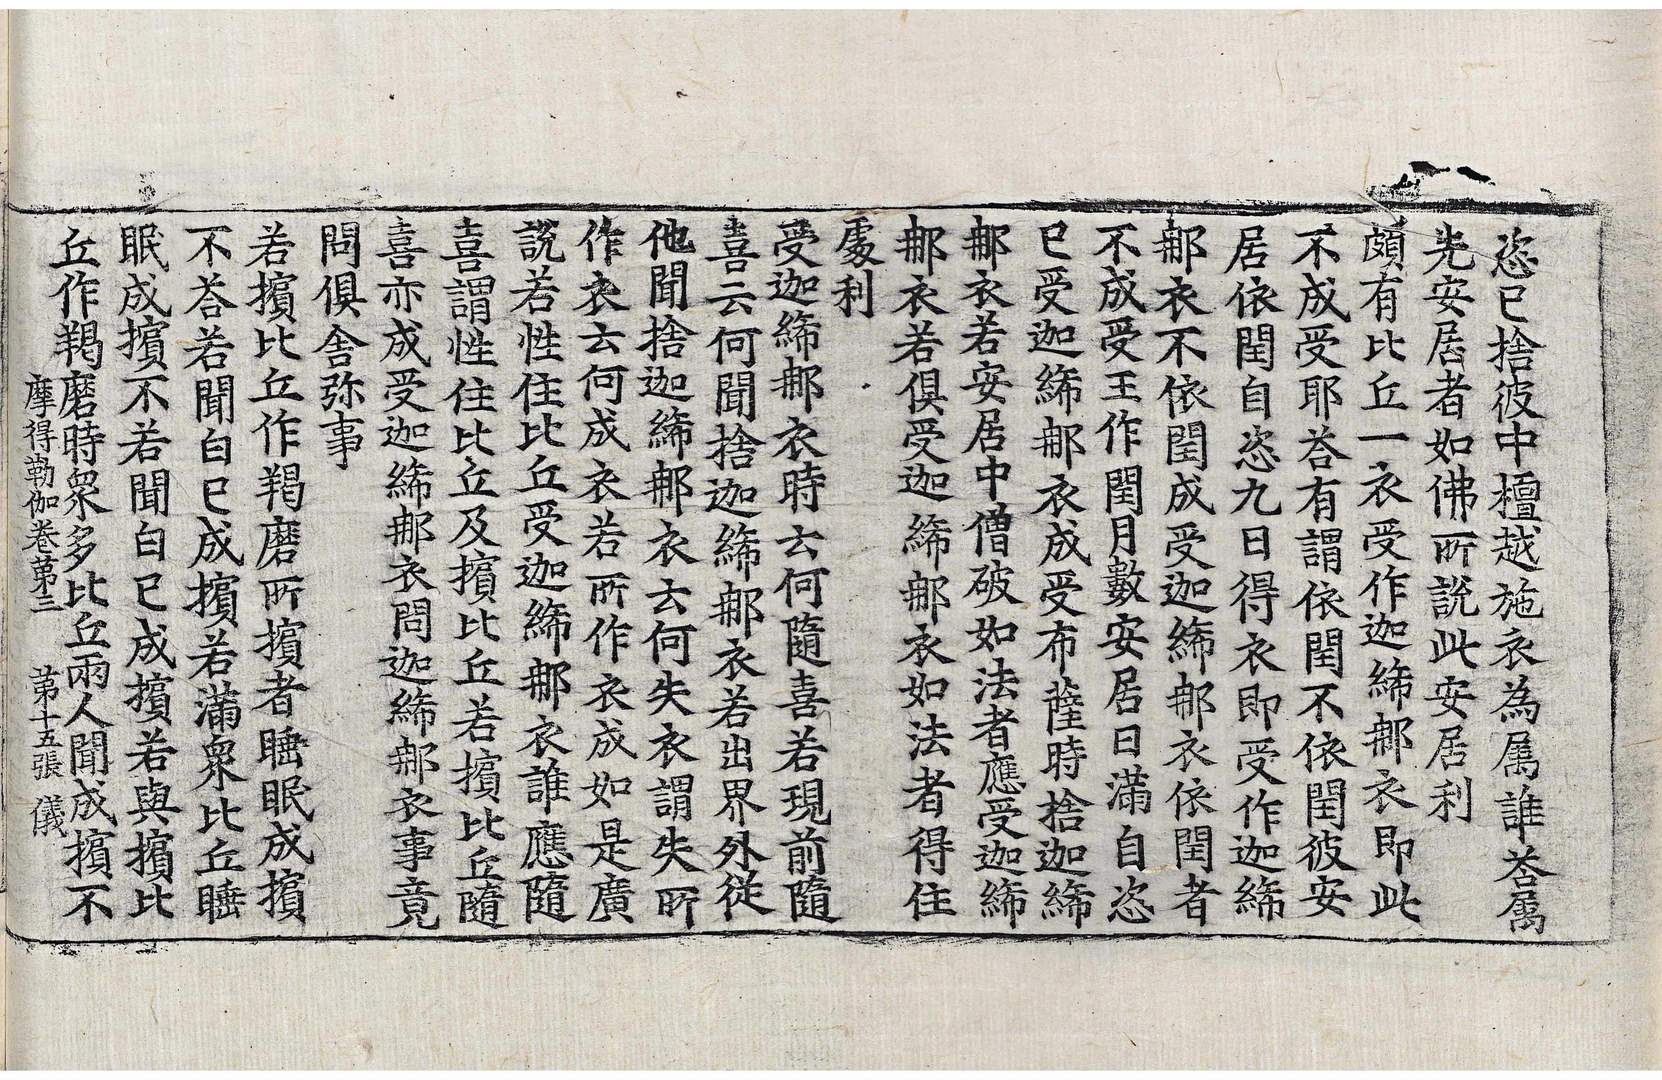 恣已捨彼中檀越施衣為属誰荅属
先安居者如佛所說此安居利
頗有比丘一衣受作迦絺𨚗衣即此
不成受耶荅有謂依閏不依閏彼安
居依閏自恣九日得衣即受作迦絺
𨚗衣不依閏成受迦絺𨚗衣依閏者
不成受王作閏月數安居日滿自恣
已受迦絺𨚗衣成受布薩時捨迦絺
𨚗衣若安居中僧破如法者應受迦絺
𨚗衣若俱受迦絺𨚗衣如法者得住
處利
受迦絺𨚗衣時云何隨喜若現前隨
喜云何聞捨迦絺𨚗衣若出界外從
他聞捨迦絺𨚗衣云何失衣謂失所
作衣云何成衣若所作衣成如是廣
說若性住比丘受迦絺𨚗衣誰應隨
喜謂性住比丘及擯比丘若擯比丘隨
喜亦成受迦絺𨚗衣問迦絺𨚗衣事竟
問俱舍弥事
若擯比丘作羯磨所擯者睡眠成擯
不荅若聞白已成擯若滿衆比丘睡
眠成擯不若聞白已成擯若與擯比
丘作羯磨時衆多比丘兩人聞成擯不
摩得勒伽卷第三　第十五張　儀